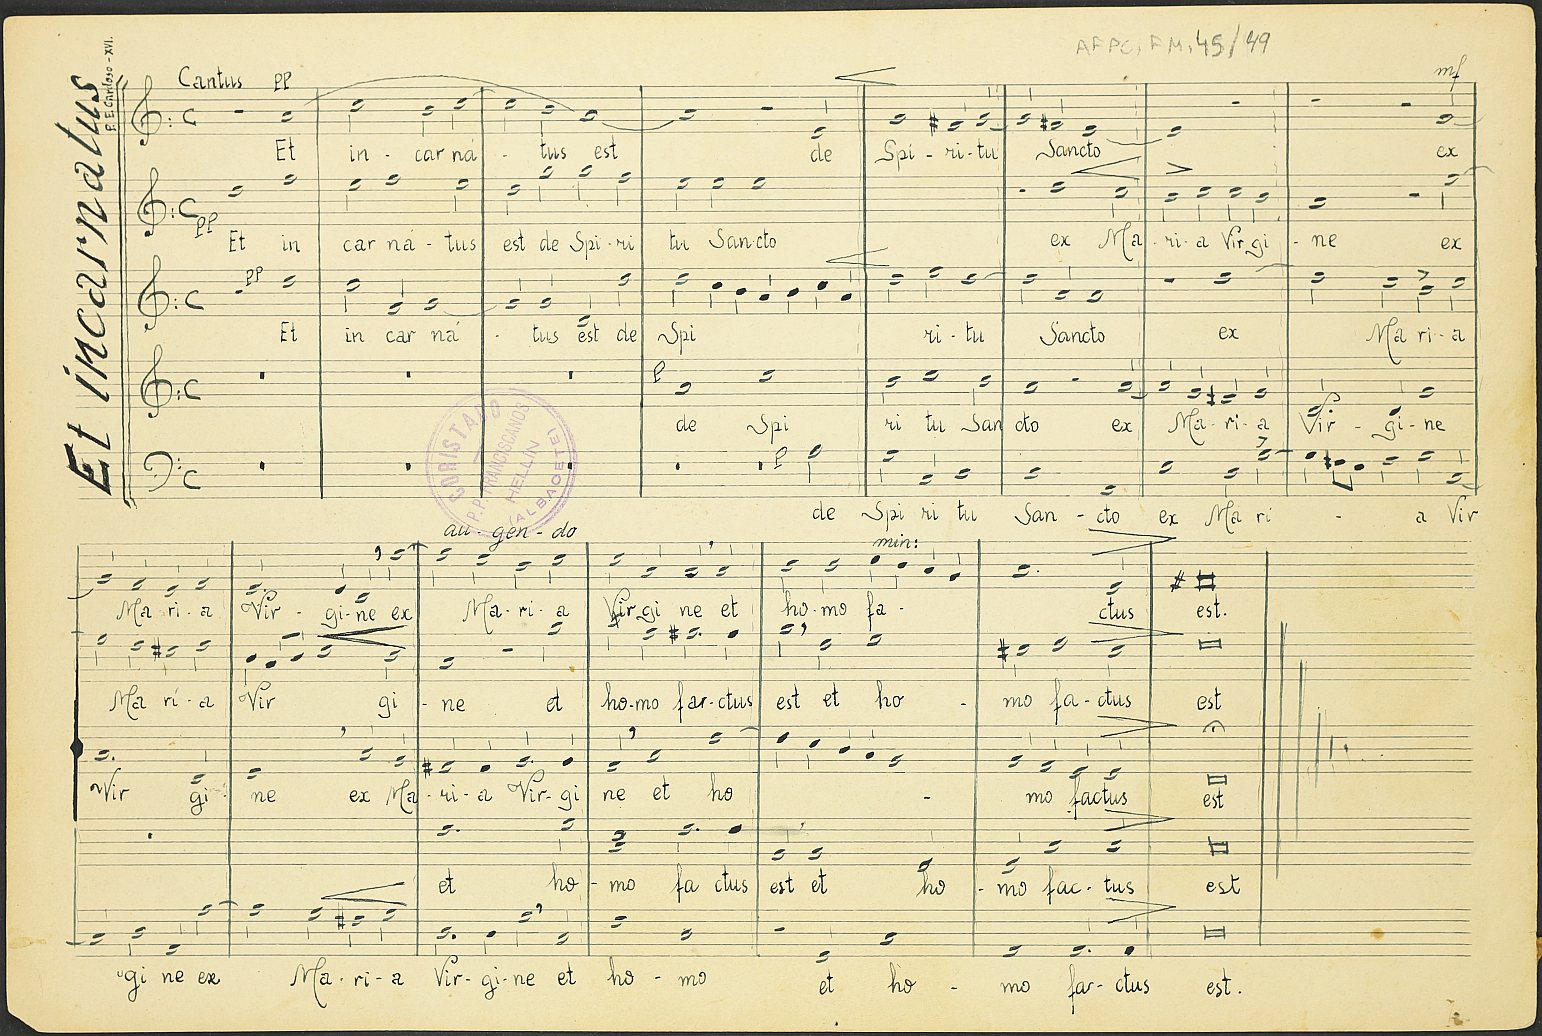 AFPC, FM, 45/49
Et incarnatus
P. E. Cardoso - XVI.
Cantus pp
mf
Et in - car ná - tus est de Spí - ri - tu Sancto ex
pp
Et in car ná - tus est de Spi - ri tu Sancto ex Ma - ri - a Virgi - ne ex
pp
Et in car ná - tus est de Spi ri - tu Sancto ex Ma ri - a
p
de Spi ri tu San cto ex Ma - ri - a Vir - gi - ne
p
de Spi ri tu San - cto ex Ma ri - a Vir
CORISTADO
P.P. FRANCISCANOS
HELLÍN
(ALBACETE)
au - gen - do
min:
Ma - ri - a Vir - gi - ne ex Ma - ri - a Virgi ne et ho - mo fa - ctus est.
Ma ri - a Vir gi - ne et ho - mo fac - ctus est et ho - mo fa - ctus est
Vir gi - ne ex Ma - ri - a Vir - gi ne et ho - mo factus est
et ho - mo fa ctus est et ho - mo fac - tus est
gi ne ex Ma - ri - a Vir - gi - ne et ho - mo et ho - mo fac - ctus est.